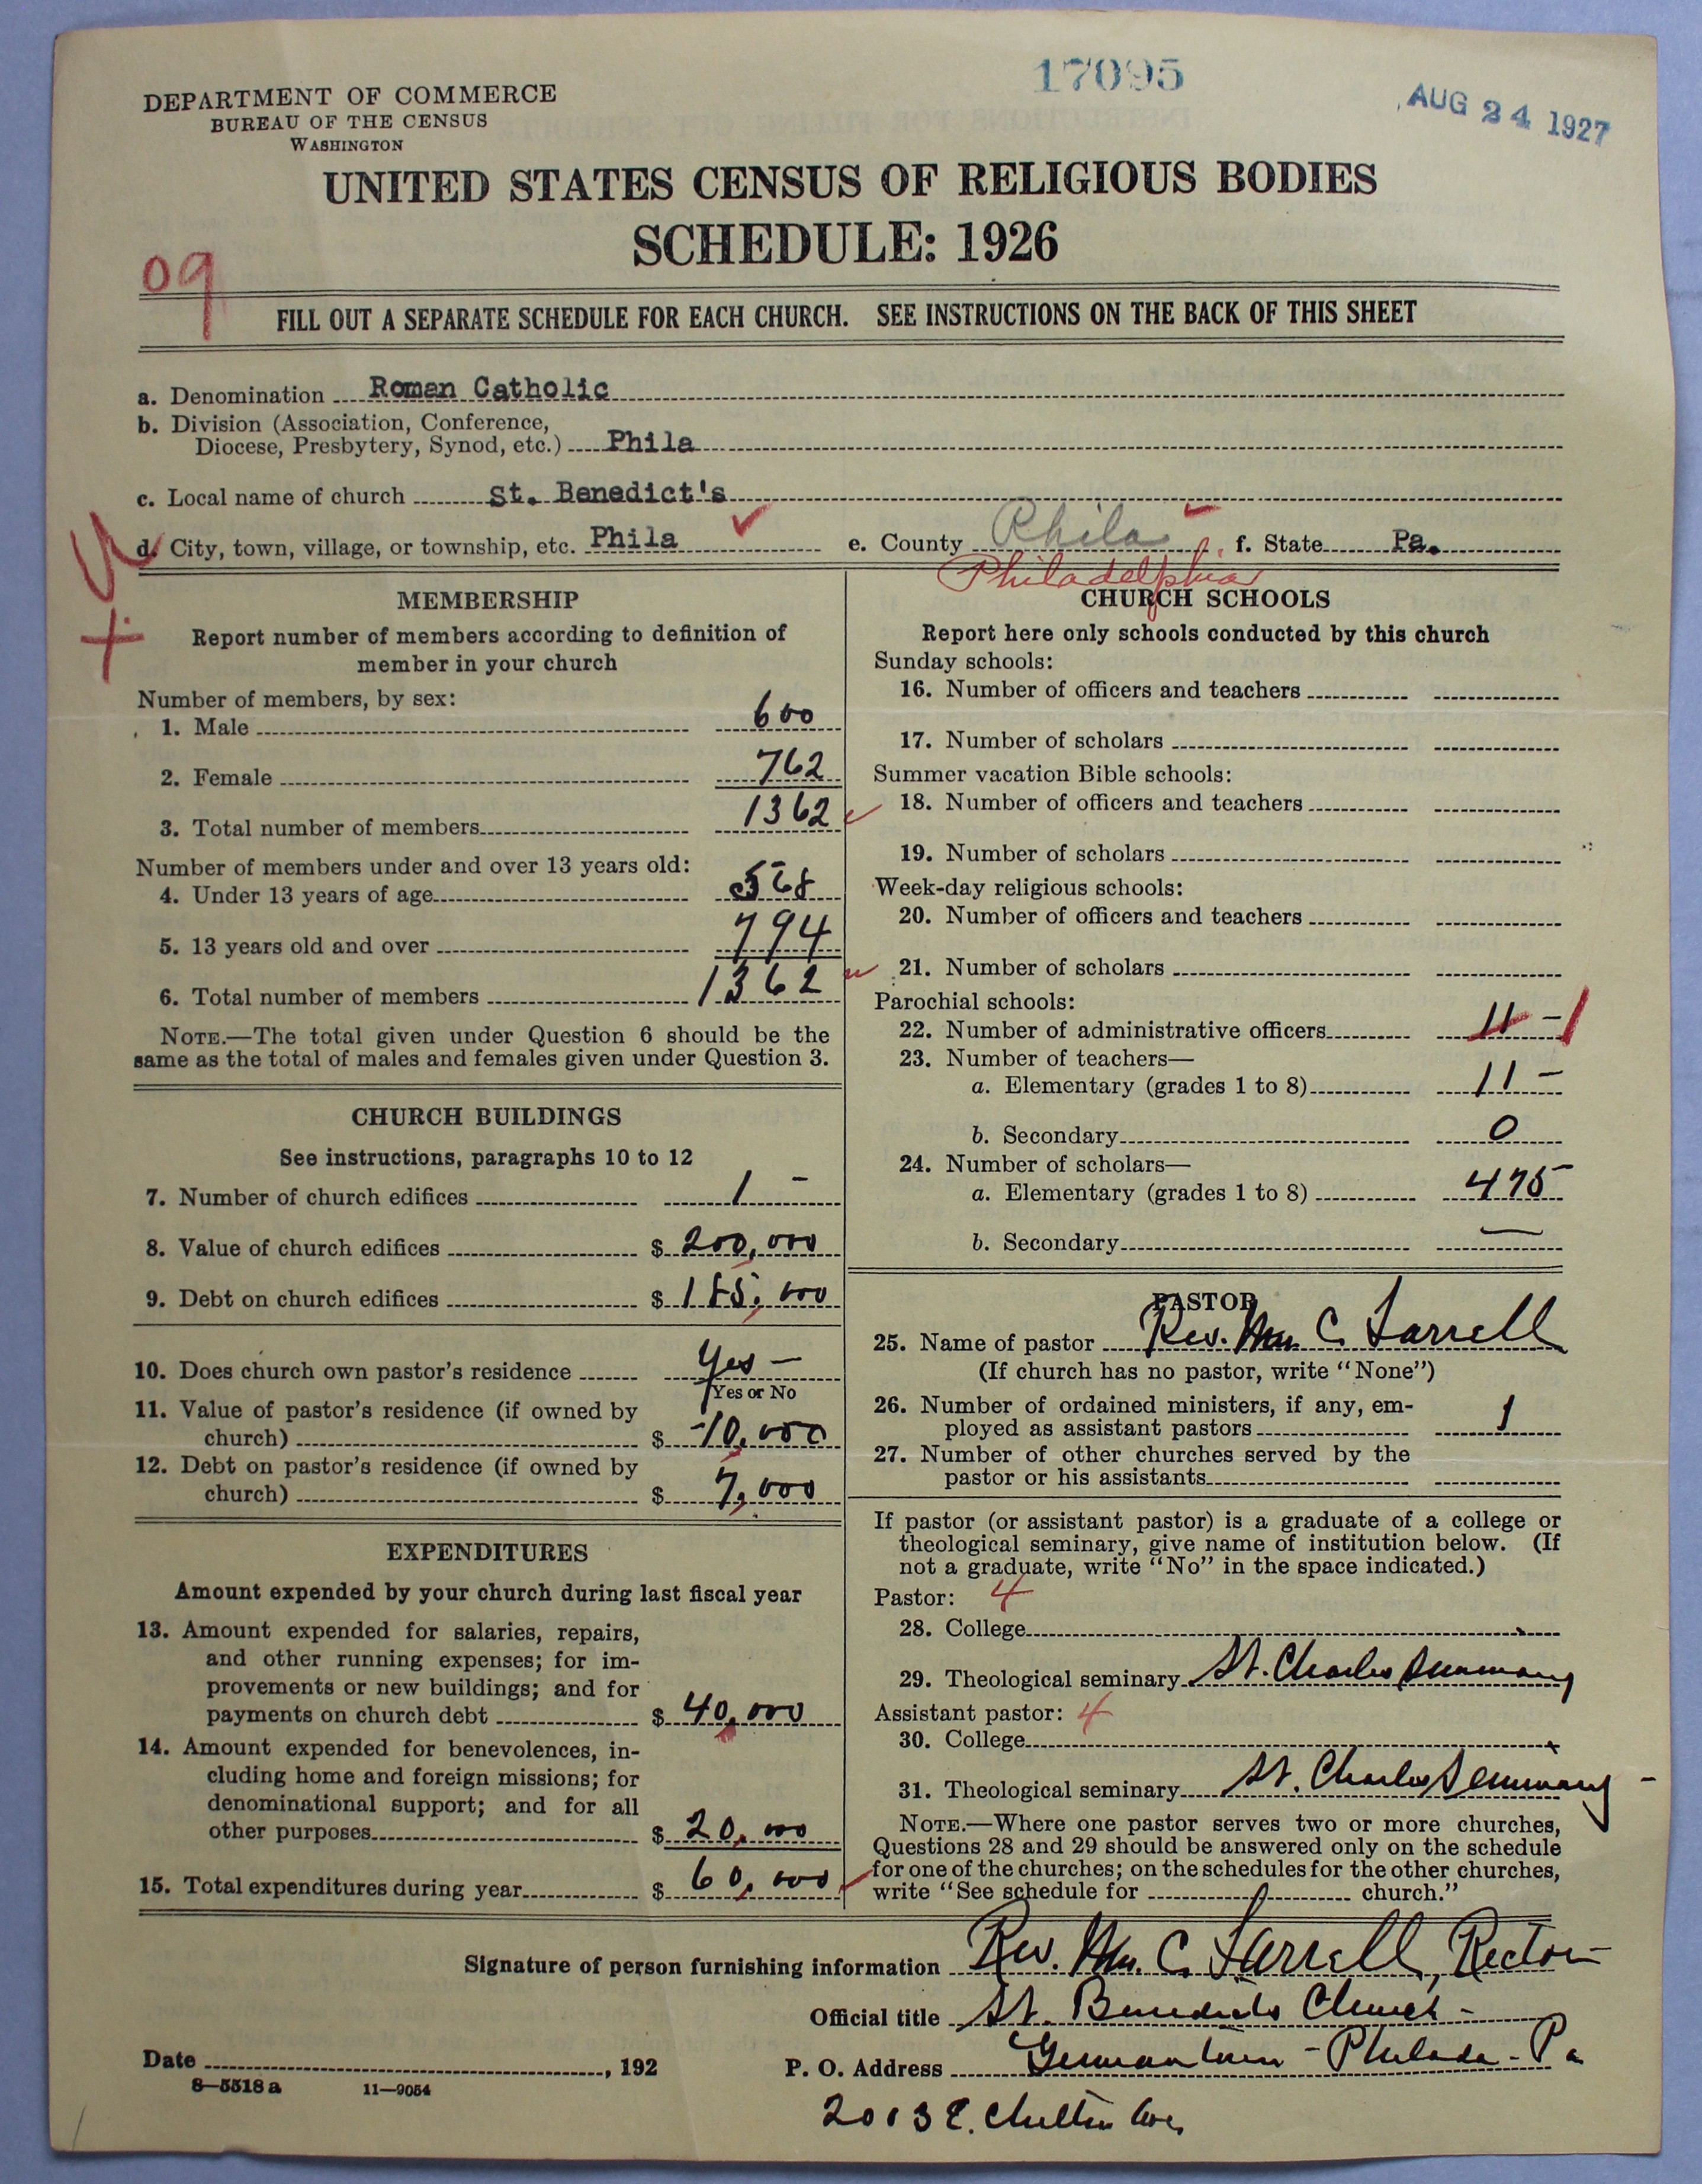 17095
AUG 24 1927
DEPARTMENT OF COMMERCE
BUREAU OF THE CENSUS
WASHINGTON
UNITED STATES CENSUS OF RELIGIOUS BODIES
SCHEDULE: 1926
09
FILL OUT A SEPARATE SCHEDULE FOR EACH CHURCH. SEE INSTRUCTIONS ON THE BACK OF THIS SHEET
a. Denomination Roman Catholic
b. Division (Association, Conference,
Diocese, Presbytery, Synod, etc.) Phila
c. Local name of church St. Benedict's
d. City, town, village, or township, etc. Phila e. County Phila f. State Pa.
Philadelphia
MEMBERSHIP
Report number of members according to definition of
member in your church
Number of members, by sex:
1. Male 600
2. Female 762
3. Total number of members 1362
Number of members under and over 13 years old:
4. Under 13 years of age 568
5. 13 years old and over 794
6. Total number of members 1362
NOTE.—The total given under Question 6 should be the
same as the total of males and females given under Question 3.
CHURCH BUILDINGS
See instructions, paragraphs 10 to 12
7. Number of church edifices 1 -
8. Value of church edifices $ 200,000
9. Debt on church edifices $ 185,000
10. Does church own pastor's residence Yes -
Yes or No
11. Value of pastor's residence (if owned by
church) $ 10,000
12. Debt on pastor's residence (if owned by
church) $ 7,000
EXPENDITURES
Amount expended by your church during last fiscal year
13. Amount expended for salaries, repairs,
and other running expenses; for im-
provements or new buildings; and for
payments on church debt $ 40,000
14. Amount expended for benevolences, in-
cluding home and foreign missions; for
denominational support; and for all
other purposes $ 20,000
15. Total expenditures during year $ 60,000
CHURCH SCHOOLS
Report here only schools conducted by this church
Sunday schools:
16. Number of officers and teachers
17. Number of scholars
Summer vacation Bible schools:
18. Number of officers and teachers
19. Number of scholars
Week-day religious schools:
20. Number of officers and teachers
21. Number of scholars
Parochial schools:
22. Number of administrative officers 11 - 1
23. Number of teachers—
a. Elementary (grades 1 to 8) 11 -
b. Secondary 0
24. Number of scholars—
a. Elementary (grades 1 to 8) 475
b. Secondary —
PASTOR
25. Name of pastor Rev. Wm. C. Farrell
(If church has no pastor, write "None")
26. Number of ordained ministers, if any, em-
ployed as assistant pastors 1
27. Number of other churches served by the
pastor or his assistants
If pastor (or assistant pastor) is a graduate of a college or
theological seminary, give name of institution below. (If
not a graduate, write "No" in the space indicated.)
Pastor: 4
28. College
29. Theological seminary St. Charles Seminary
Assistant pastor: 4
30. College
31. Theological seminary St. Charles Seminary -
NOTE.—Where one pastor serves two or more churches,
Questions 28 and 29 should be answered only on the schedule
for one of the churches; on the schedules for the other churches,
write "See schedule for church."
Signature of person furnishing information Rev. Wm. C. Farrell, Rector
Official title St. Benedicts Church -
Date , 192
P. O. Address Germantown - Philada - Pa
8—5518 a 11—9054
2013 E. Chelten Ave.